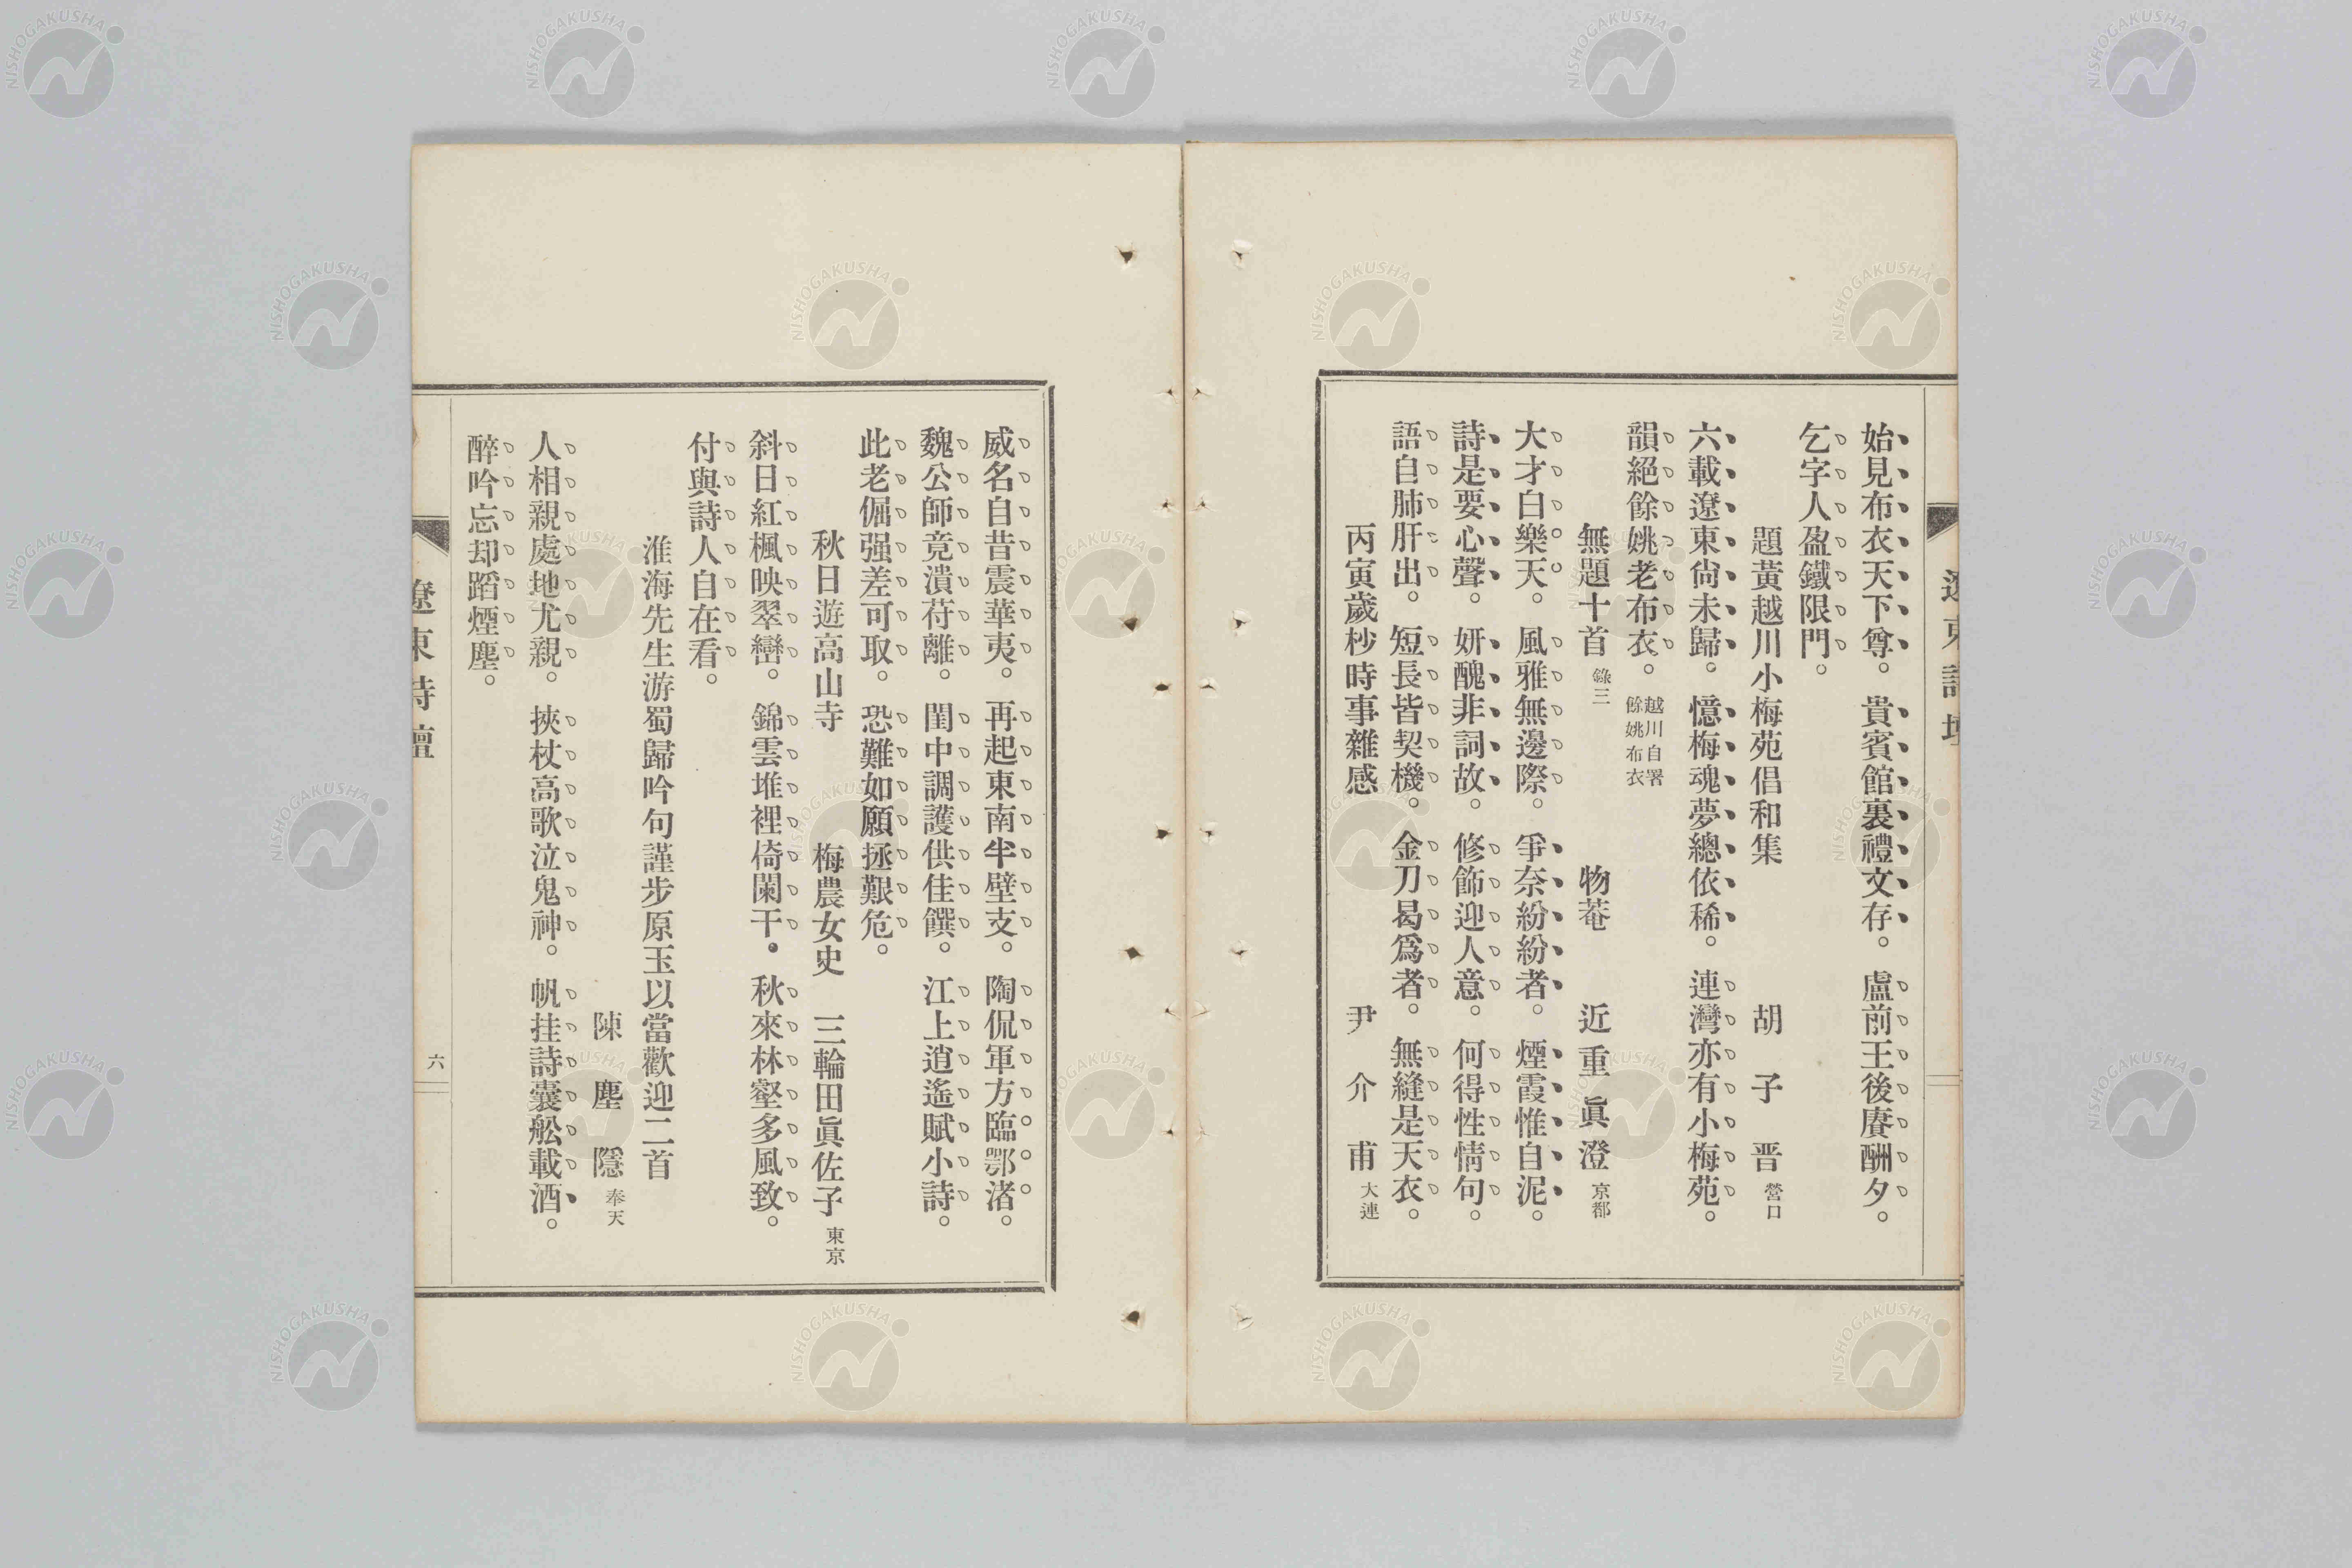 始見布衣天下尊。貴賓館裏禮文存。盧前王後賡酬夕。
乞字人盈鐵限門。
題黃越川小梅苑倡和集　胡子晋 營口
六載遼東尙未歸。憶梅魂夢總依稀。連灣亦有小梅苑。
韻絕餘姚老布衣。越川自署餘姚布衣
無題十首 錄三　物菴　近重眞澄 京都
大才白樂天。風雅無邊際。爭奈紛紛者。煙霞惟自泥。
詩是要心聲。妍醜非詞故。修飾迎人意。何得性情句。
語自肺肝出。短長皆契機。金刀曷爲者。無縫是天衣。
丙寅歲杪時事雜感　尹介甫 大連
威名自昔震華夷。再起東南半壁支。陶侃軍方臨鄂渚。
魏公師竟潰苻離。閨中調護供佳饌。江上逍遙賦小詩。
此老倔强差可取。恐難如願拯艱危。
秋日遊高山寺　梅農女史　三輪田眞佐子 東京
斜日紅楓映翠巒。錦雲堆裡倚闌干．秋來林壑多風致。
付與詩人自在看。
淮海先生游蜀歸吟句謹步原玉以當歡迎二首
陳塵隱 奉天
人相親處地尤親。挾杖高歌泣鬼神。帆挂詩囊舩載酒。
醉吟忘却蹈煙塵。
遼東詩壇
六
NISHOGAKUSHA